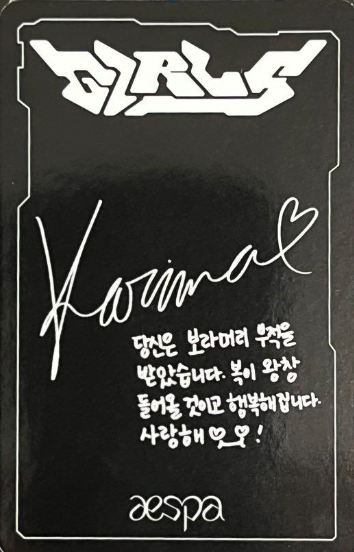 GIRLS
Karina♡
당신은 보라머리 부적을
받았습니다. 복이 왕창
들어올 것이고 행복해집니다.
사랑해 ♡♡!
aespa